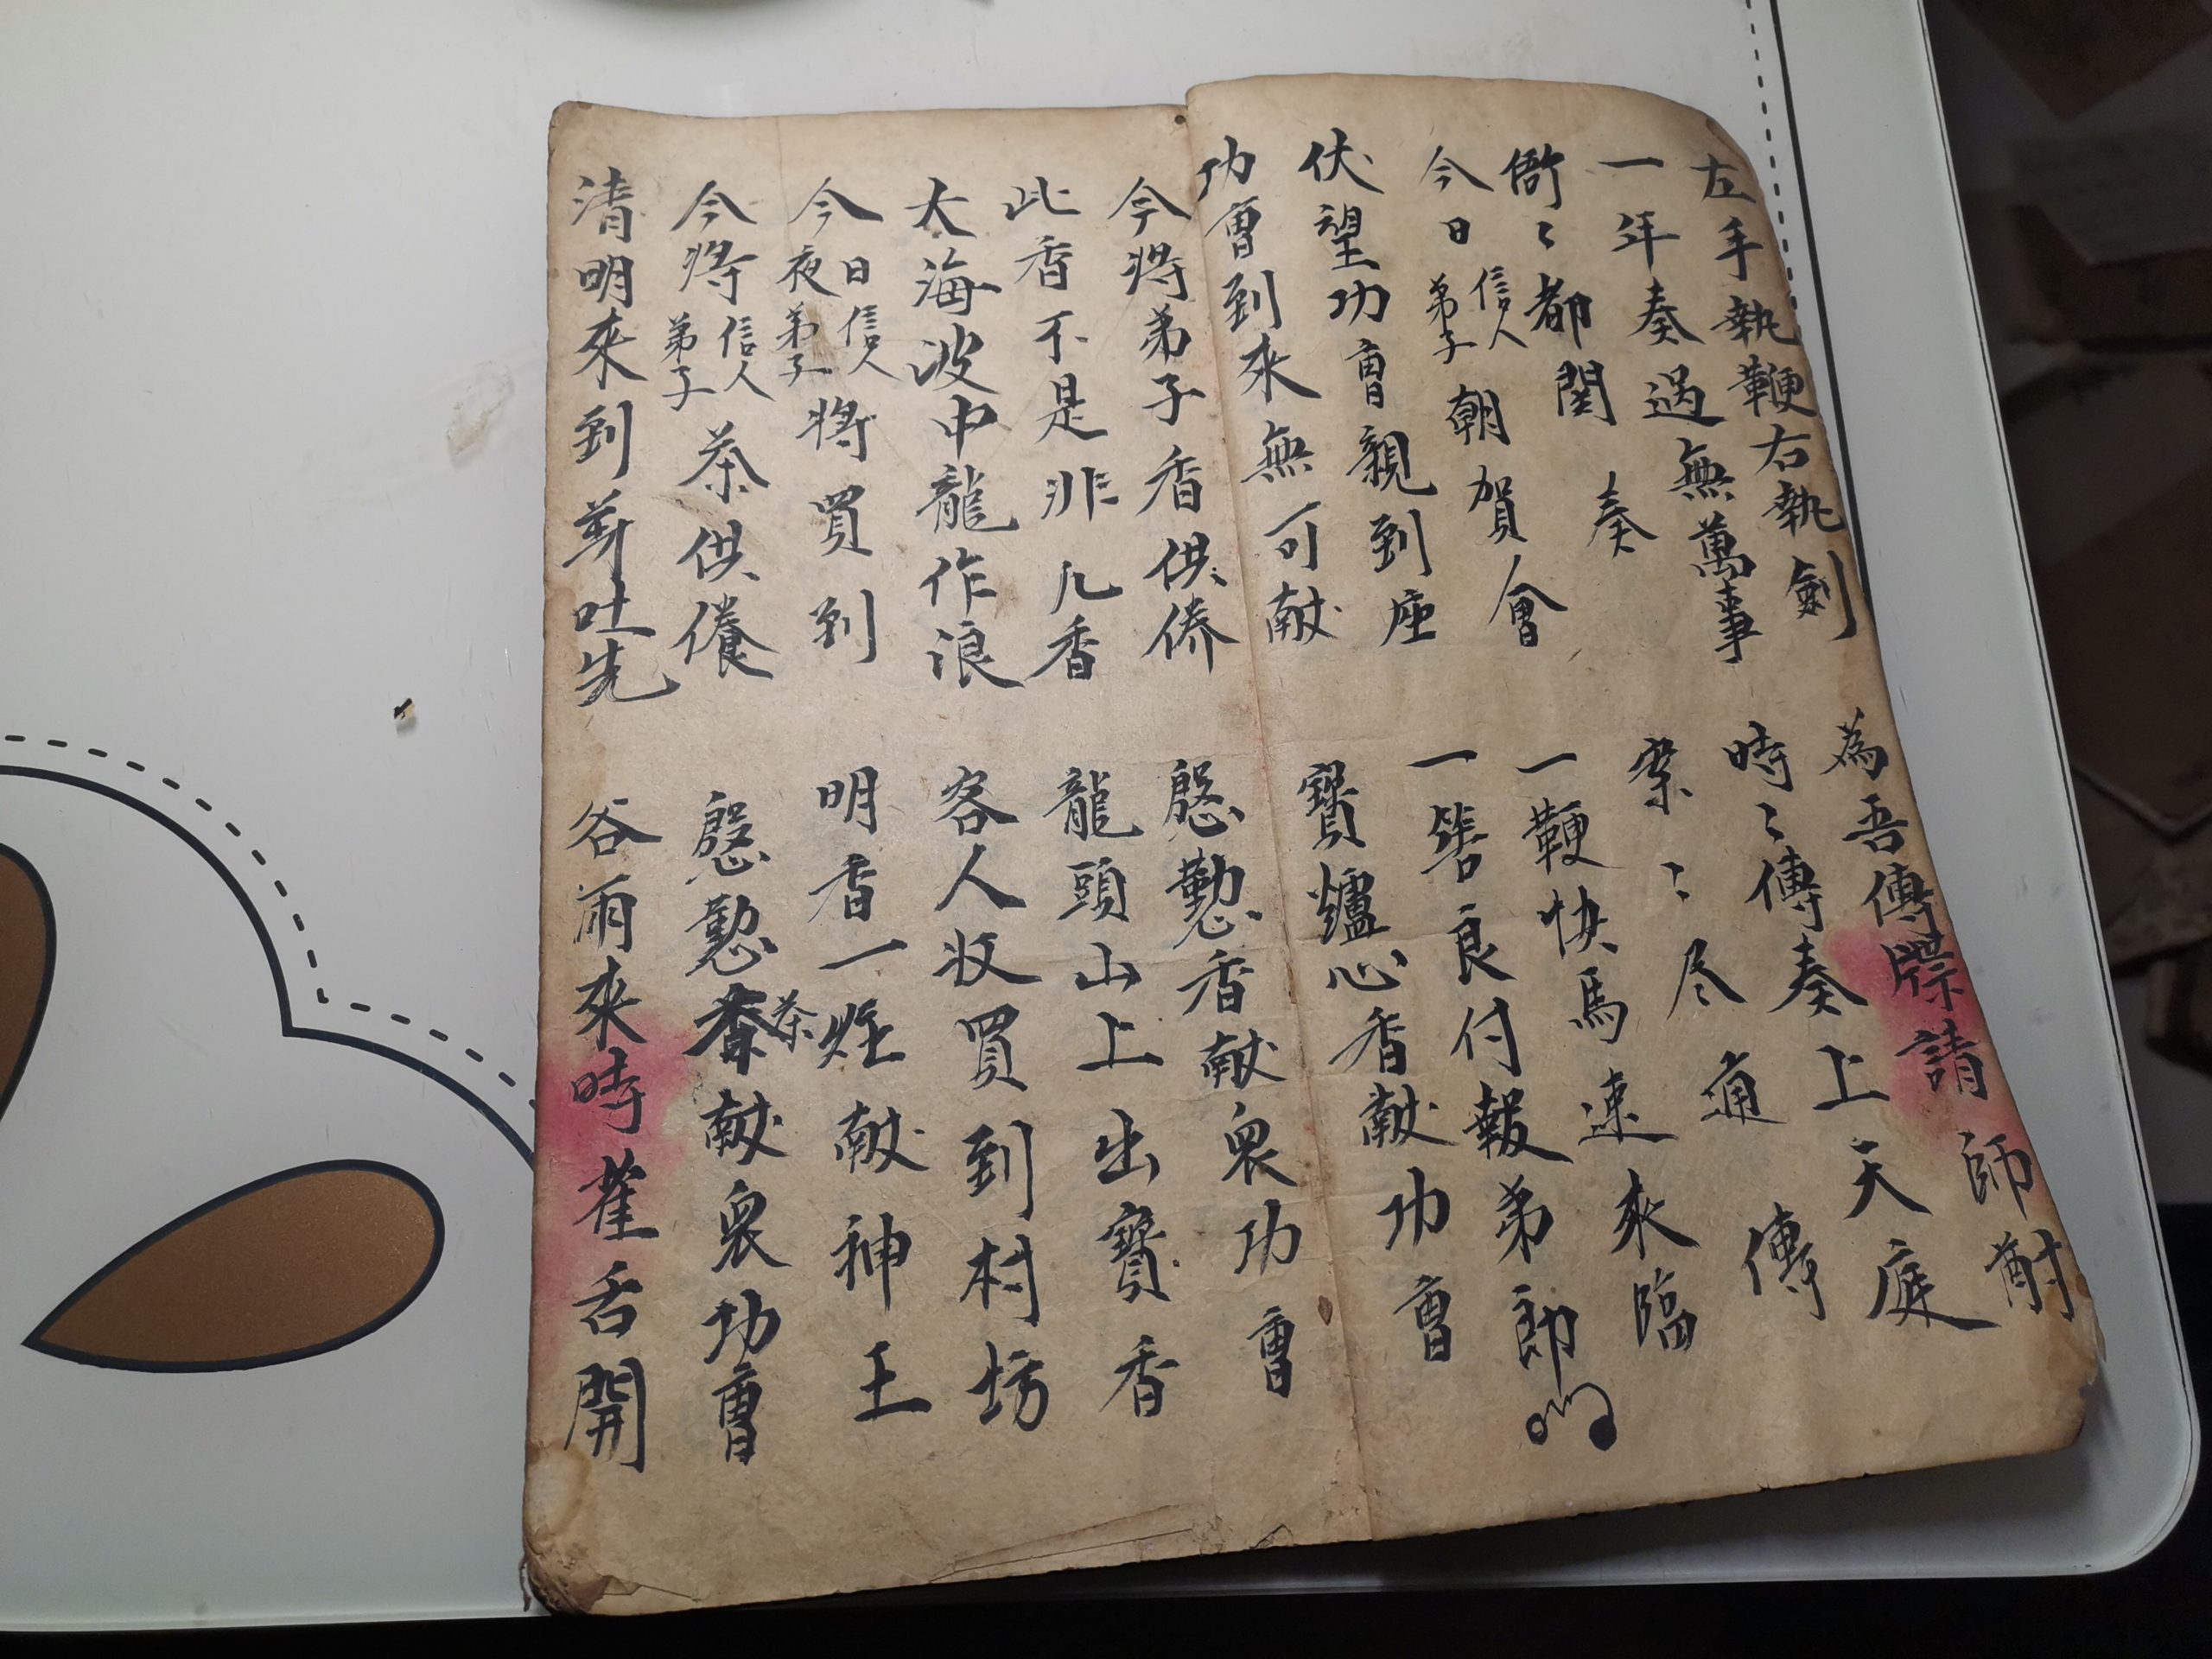 左手執鞭右執劍　為吾傳牒請師酧
一年奏過無萬事　時〻傳奏上天庭
衙〻都関奏　案〻尽通傳
今日信人弟子朝賀會　一鞭快馬速來臨
伏望功曹親到座　一筶良付報弟郎
功曹到來無可献　寳爐心香献功曹
今将弟子香供俻　慇懃香献衆功曹
此香不是非凡香　龍頭山上出寳香
大海波中龍作浪　客人收買到村坊
今日夜信人弟子将買到　明香一炷献神王
今将信人弟子茶供儀　慇懃茶献衆功曹
清明來到芽吐先　谷雨來時雀舌開